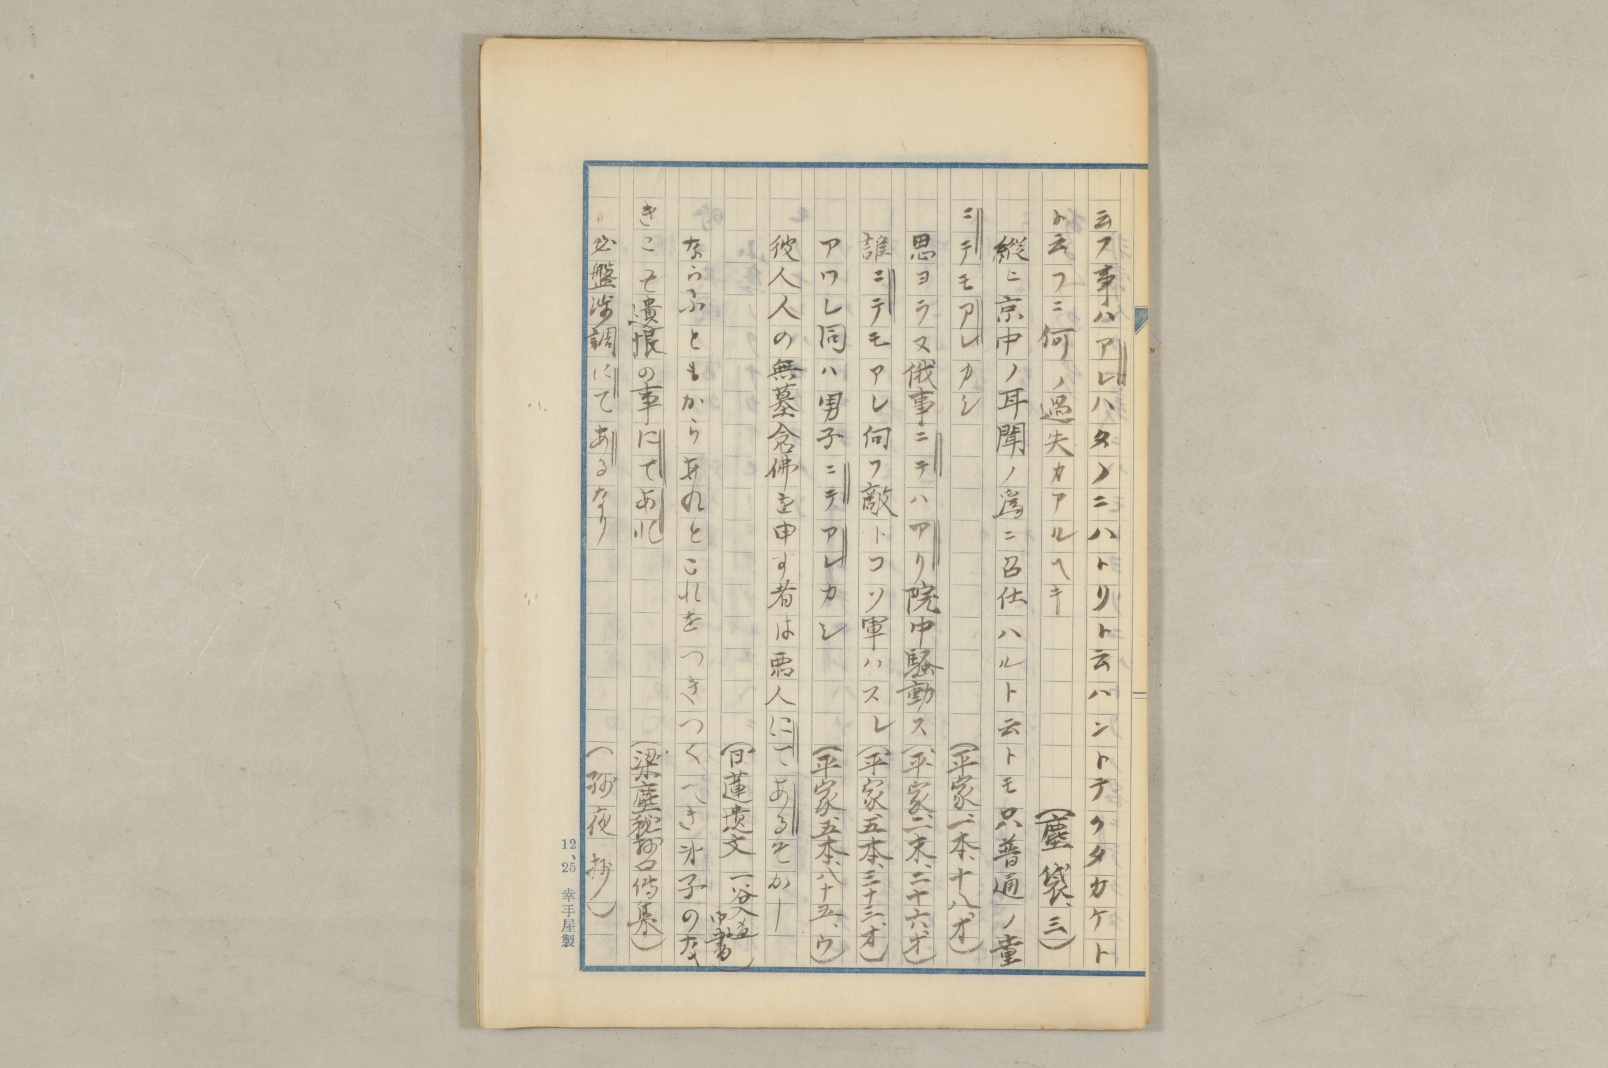 云フ事ハアレハタノニハトリト云ハントテクタカケト
ト云フニ何ノ過失カアルヘキ　（塵袋、三）
縦ニ京中ノ耳聞ノ為ニ召仕ハルト云トモ只普通ノ童
ニテモアレカシ　（平家、一本、十八、オ）
思ヨラス俄事ニテハアリ院中騒動ス（平家、二末、二十六、オ）
誰ニテモアレ何フ敵トコソ軍ハスレ（平家、五本、三十三、オ）
アワレ同ハ男子ニテアレカシ　（平家、五本、八十五、ウ）
彼人人の無墓念佛を申す者は悪人にてあるそかし
（日蓮遺文　一谷入道御書）
ならふともからあれとこれをつきつくへき弟子のな
きこそ遺恨の事にてあれ　（梁塵秘抄口傳集）
盤渉調にてあるなり　（残夜抄）
12、25　幸手屋製